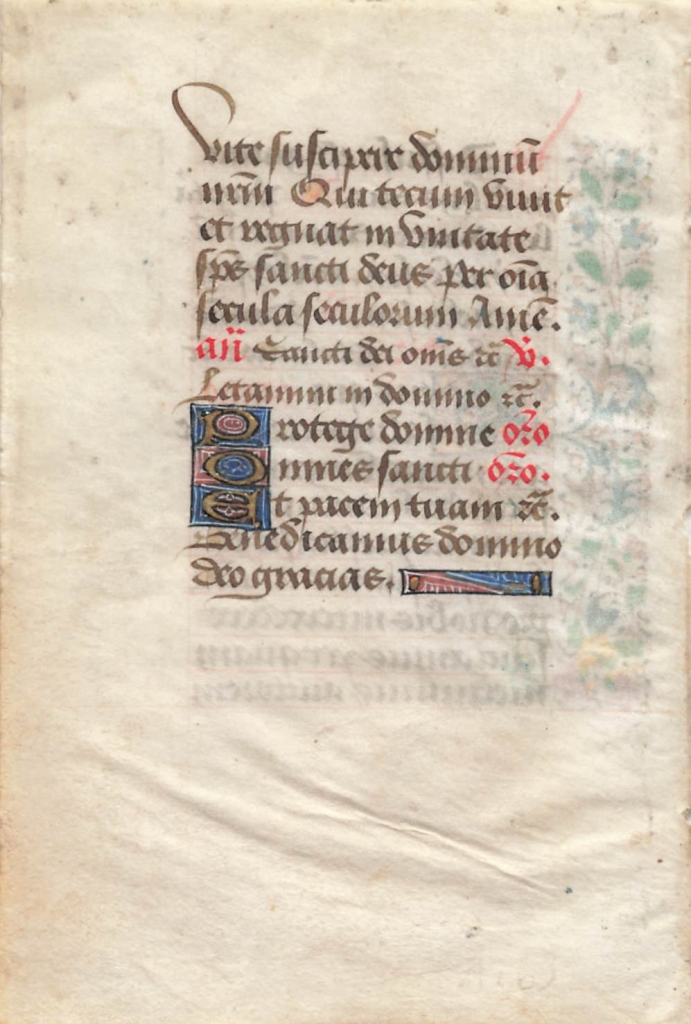 vite suscipere dominū
nrm̄ Qui tecum viuit
et regnat in vnitate
sp̄s sancti deus per oīa
secula seculorum Amē.
añ Sancti dei om̄s ⁊c̄ v̄.
Letamini in domino ⁊c̄.
Protege domine or̄o
Omnes sancti or̄o.
Et pacem tuam ⁊c̄.
Benedicamus domino
deo gracias.